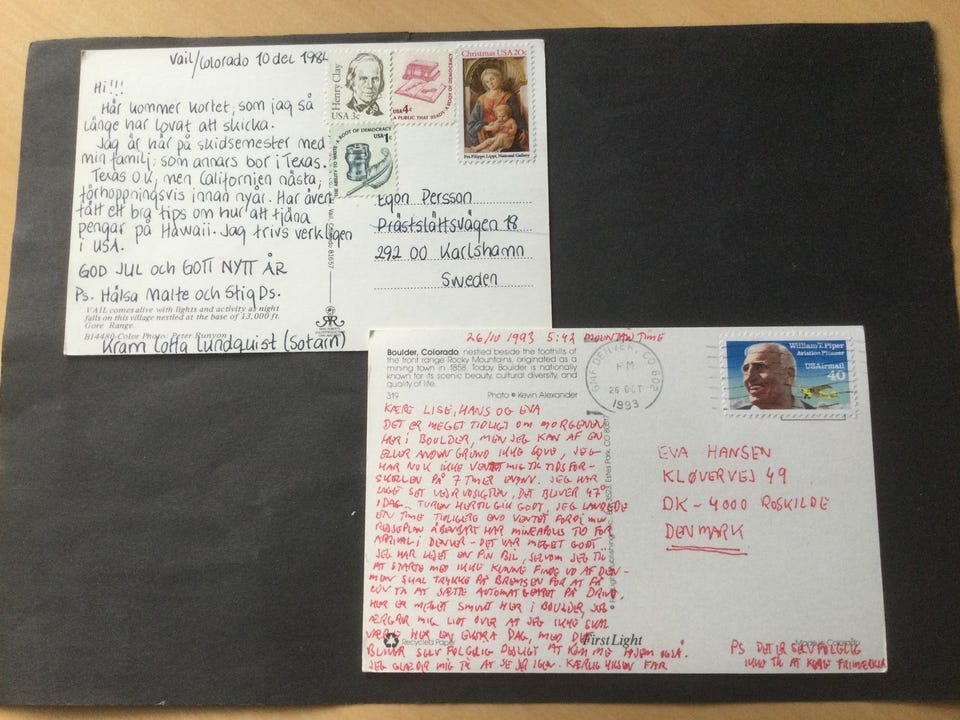 Vail/Colorado 10 dec 1984
Hi!!!
Här kommer kortet, som jag så
länge har lovat att skicka.
Jag är här på skidsemester med
min familj, som annars bor i Texas.
Texas O.K, men Californien nästa,
förhoppningsvis innan nyår. Har även
fått ett bra tips om hur att tjäna
pengar på Hawaii. Jag trivs verkligen
i USA.
GOD JUL och GOTT NYTT ÅR
Ps. Hälsa Malte och Stig Ds.
VAIL comes alive with lights and activity as night
falls on this village nestled at the base of 13,000 ft.
Gore Range.
B14480-Color Photo: Peter Runyon
Kram Lotta Lundquist (Sotarn)
Henry Clay
USA 3c
USA 4c
A PUBLIC THAT READS A ROOT OF DEMOCRACY
THE ABILITY TO WRITE A ROOT OF DEMOCRACY
USA 1c
Christmas USA 20c
Fra Filippo Lippi, National Gallery
Vail, Colorado 81657
Egon Persson
Prästslättsvägen 18
292 00 Karlshamn
Sweden
26/10 1993 5:42 MOUNTAIN TIME
Boulder, Colorado, nestled beside the foothills of
the front range Rocky Mountains, originated as a
mining town in 1858. Today, Boulder is nationally
known for its scenic beauty, cultural diversity, and
quality of life.
319
Photo • Kevin Alexander
KÆRE LISE, HANS OG EVA
DET ER MEGET TIDLIGT OM MORGENEN
HER I BOULDER, MEN JEG KAN AF EN
ELLER ANDEN GRUND IKKE SOVE, JEG
HAR NOK IKKE VÆNNET MIG TIL TIDSFOR-
SKELLEN PÅ 7 TIMER ENDNU. JEG HAR
LIGE SET VEJRUDSIGTEN, DET BLIVER 47°
I DAG. TUREN HERTIL GIK GODT. JEG LANDEDE
EN TIME TIDLIGERE END VENTET FORDI MIN
REJSEPLAN ÅBENBART HAR MINEAPOLIS TID FOR
ARRIVAL I DENVER - DET VAR MEGET GODT.
JEG HAR LEJET EN FIN BIL, SELVOM JEG TIL
AT STARTE MED IKKE KUNNE FINDE UD AF DEN -
MAN SKAL TRYKKE PÅ BREMSEN FOR AT FÅ
LOV TIL AT SÆTTE AUTOMATGEARET PÅ DRIVE.
HER ER MEGET SMUKT HER I BOULDER, JEG
ÆRGRER MIG LIDT OVER AT JEG IKKE SKAL
VÆRE HER EN EKSTRA DAG, MEN DET
BLIVER SELVFØLGELIG DEJLIGT AT KOMME HJEM OGSÅ.
JEG GLÆDER MIG TIL AT SE JER IGEN. KÆRLIG HILSEN FAR
Recycled Paper
First Light
Estes Park, CO 80517
DENVER, CO 802
PM
26 OCT
1993
William T. Piper
Aviation Pioneer
USAirmail
40
EVA HANSEN
KLØVERVEJ 49
DK-4000 ROSKILDE
DENMARK
PS DET ER SELVFØLGELIG
IKKE TIL AT KØBE FRIMÆRKER